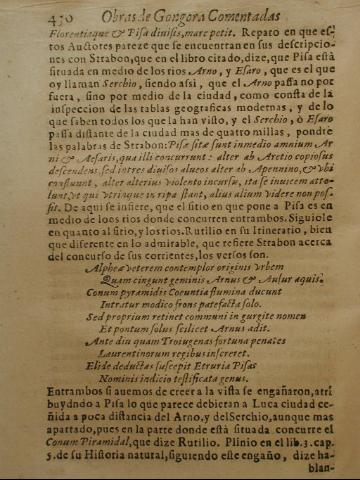 450 Obras de Gongora Comentadas
Florentiaque & Pisa divisis, mare petit. Reparo en que es-
tos Auctores pareze que se encuentran en sus descripcio-
nes con Strabon, que en el libro citado, dize, que Pisa está
situada en medio de los rios Arno, y Esaro, que es el que
oy llaman Serchio, siendo assi, que el Arno passa no por
fuera, sino por medio de la ciudad, como consta de la
inspeccion de las tablas geograficas modernas, y de lo
que saben todos los que la han visto, y el Serchio, ò Esaro
passa distante de la ciudad mas de quatro millas, pondrè
las palabras de Strabon: Pisæ sitæ sunt in medio amnium Ar
ni & Aesaris, qua illi concurrunt: alter ab Aretio copiosus
descendens, sed in tres divisus alueos alter ab Apennino, & vbi
confluunt, alter alterius violento incursu, ita se inuicem atto-
lunt, vt qui vtriusque in ripa stant, alius alium videre non pos-
sit. De aqui se infiere, que el sitio en que pone a Pisa es en
medio de loos rios donde concurren entrambos. Siguiole
en quanto al sitio, y los rios. Rutilio en su Itineratio, bien
que diferente en lo admirable, que refiere Strabon acerca
del concurso de sus corrientes, los versos son.
Alpheæ veterem contemplor originis vrbem
Quam cingunt geminis Arnus & Ausur aquis.
Conum pyramidis Coeuntia flumina ducunt
Intratur modico frons patefacta solo.
Sed proprium retinet communi in gurgite nomen
Et pontum solus scilicet Arnus adit.
Ante diu quam Troiugenas fortuna penates
Laurentinorum regibus insereret.
Elide deductas suscepit Etruria Pisas
Nominis indicio testificata genus.
Entrambos si auemos de creer a la vista se engañaron, atri
buydndo a Pisa lo que parece debieran a Luca ciudad ce-
ñida a poca distancia del Arno, y del Serchio, aunque mas
apartado, pues en la parte donde está situada concurre el
Conum Piramidal, que dize Rutilio. Plinio en el lib. 3. cap.
5. de su Historia natural, siguiendo este engaño, dize ha-
blan-